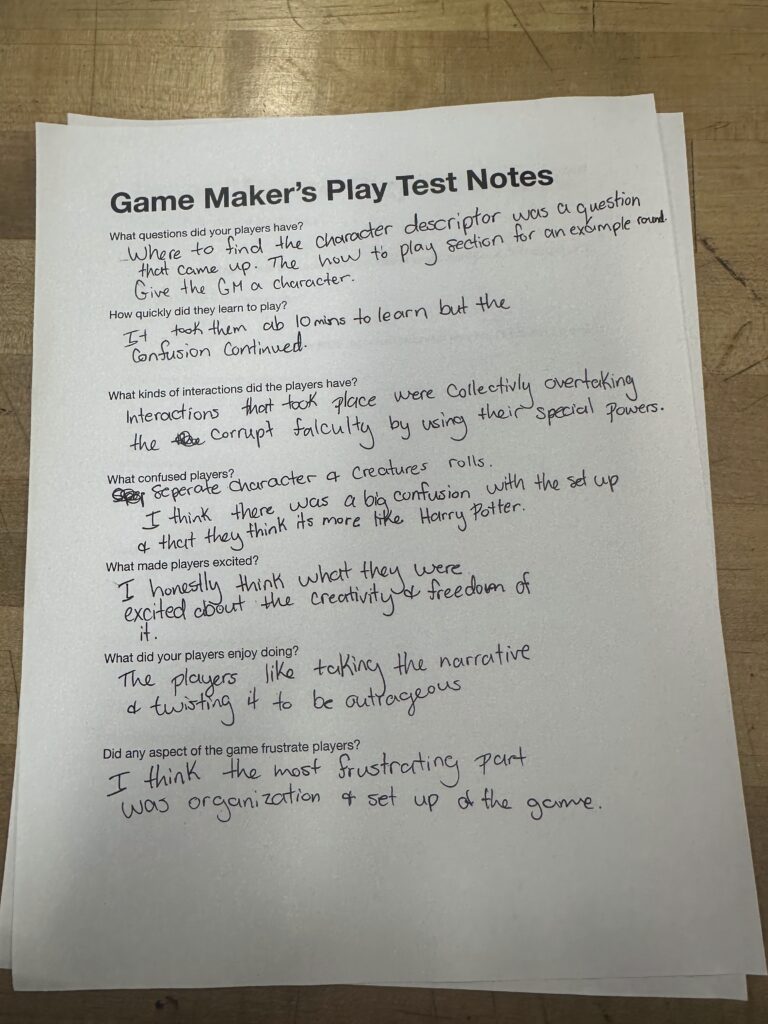 Game Maker's Play Test Notes
What questions did your players have?
Where to find the character descriptor was a question
that came up. The how to play section for an example round.
Give the GM a character.
How quickly did they learn to play?
It took them ab 10 mins to learn but the
Confusion Continued.
What kinds of interactions did the players have?
Interactions that took place were Collectivly overtaking
the corrupt falculty by using their special powers.
What confused players?
Seperate character & Creatures rolls.
I think there was a big confusion with the set up
& that they think its more like Harry Potter.
What made players excited?
I honestly think what they were
excited about the creativity & freedom of
it.
What did your players enjoy doing?
The players like taking the narrative
& twisting it to be outrageous
Did any aspect of the game frustrate players?
I think the most frustrating part
was organization & set up of the game.